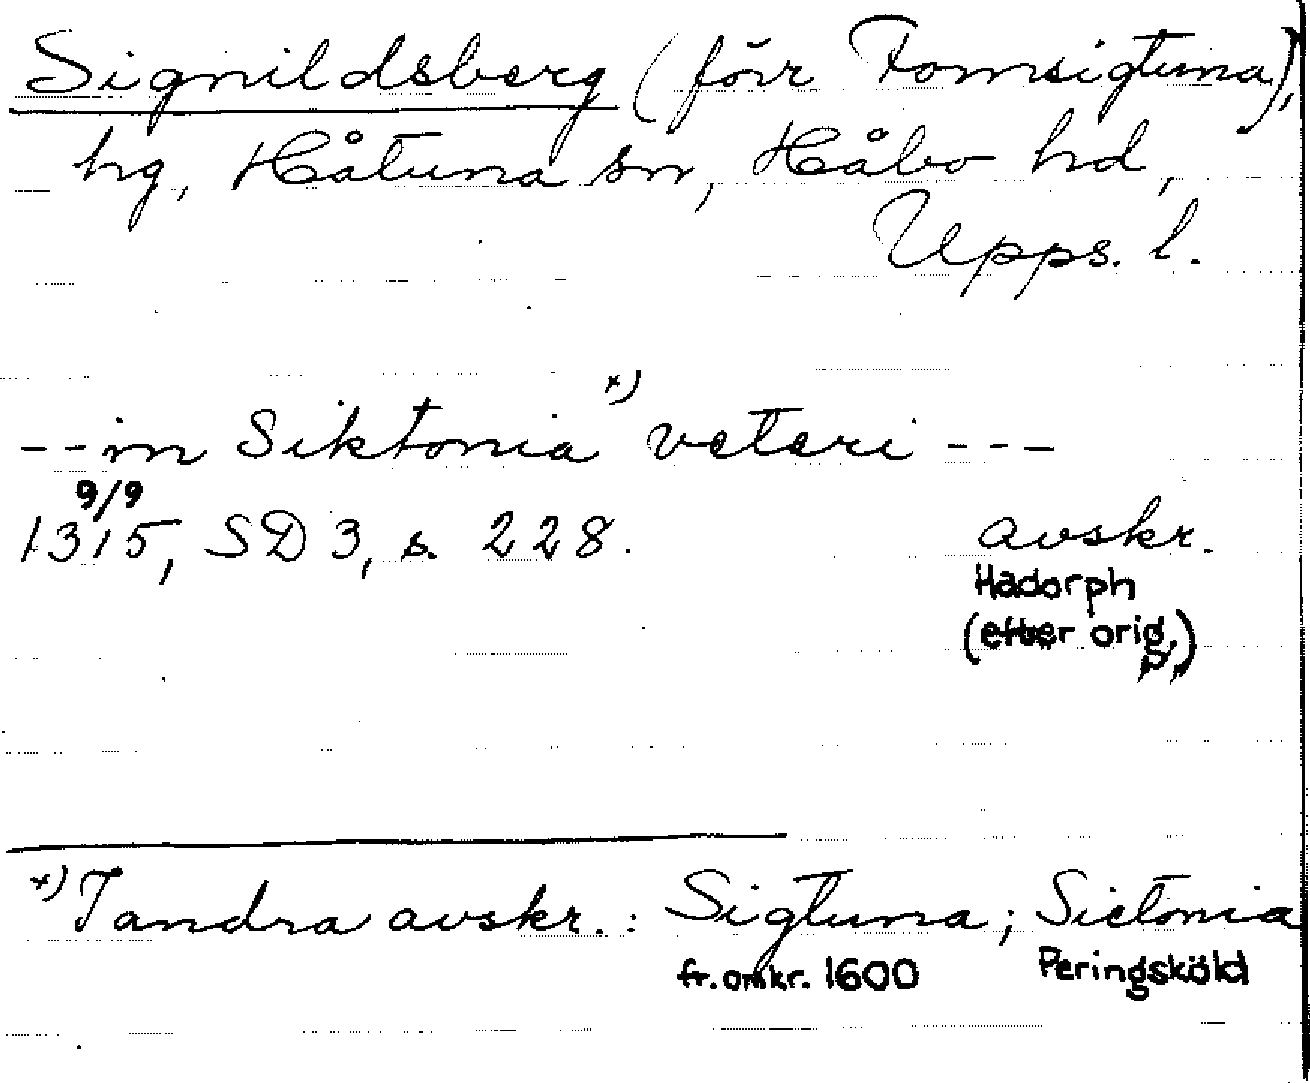 Signildsberg (förr Fornsigtuna),
hg, Håtuna sn, Håbo hd,
Upps. l.
--in Siktonia x) veteri ---
9/9
1315, SD 3, s. 228.
avskr.
Hadorph
(efter orig.)
x) I andra avskr.: Sigtuna; Sictonia
fr. omkr. 1600 Peringsköld